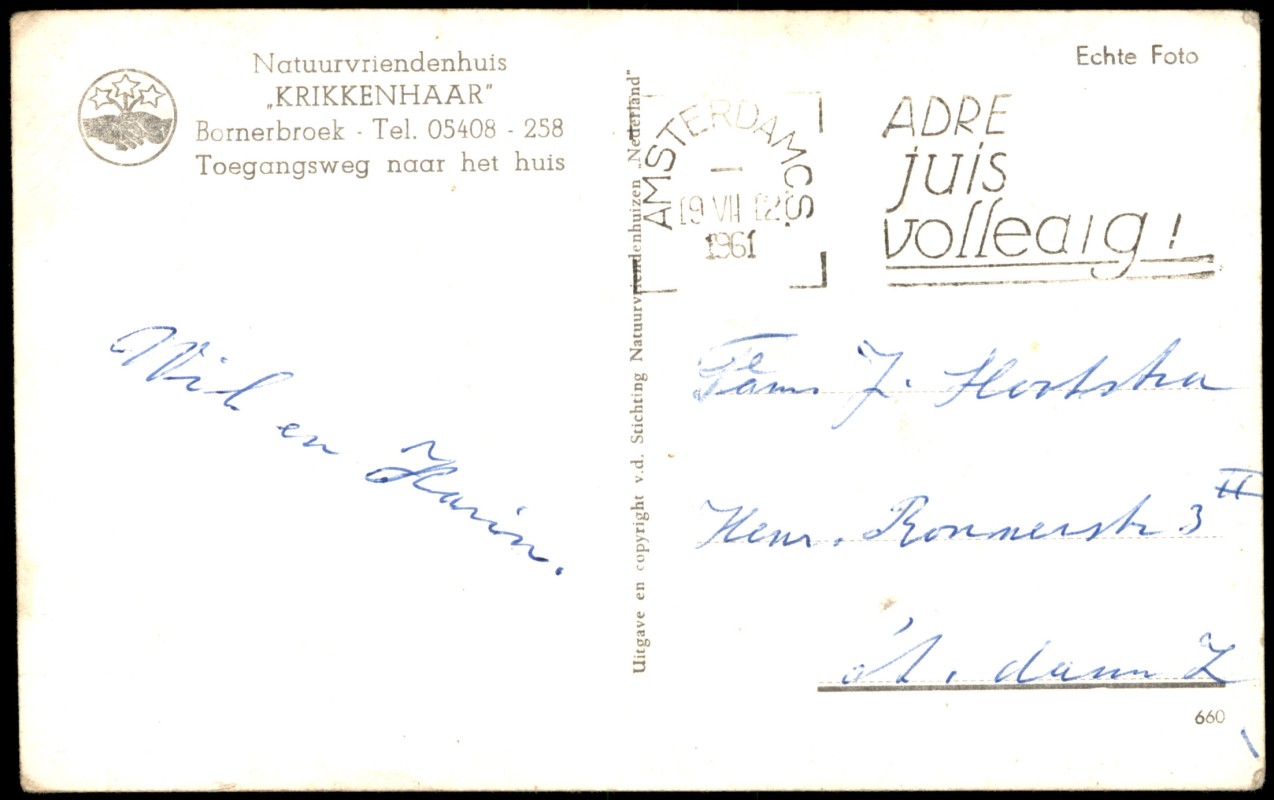 Natuurvriendenhuis
„KRIKKENHAAR”
Bornerbroek - Tel. 05408 - 258
Toegangsweg naar het huis
Wil en Karin.
Uitgave en copyright v.d. Stichting Natuurvriendenhuizen „Nederland”
Echte Foto
AMSTERDAM C.S.
19 VII 12
1961
ADRE
juis
volledig!
Fam. J. Hoekstra
Henr. Ronnerstr 3 II
A. dam Z
660